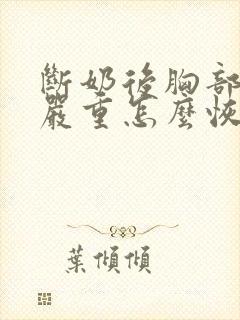 斷奶後胸部
嚴重怎麼恢
葉傾傾